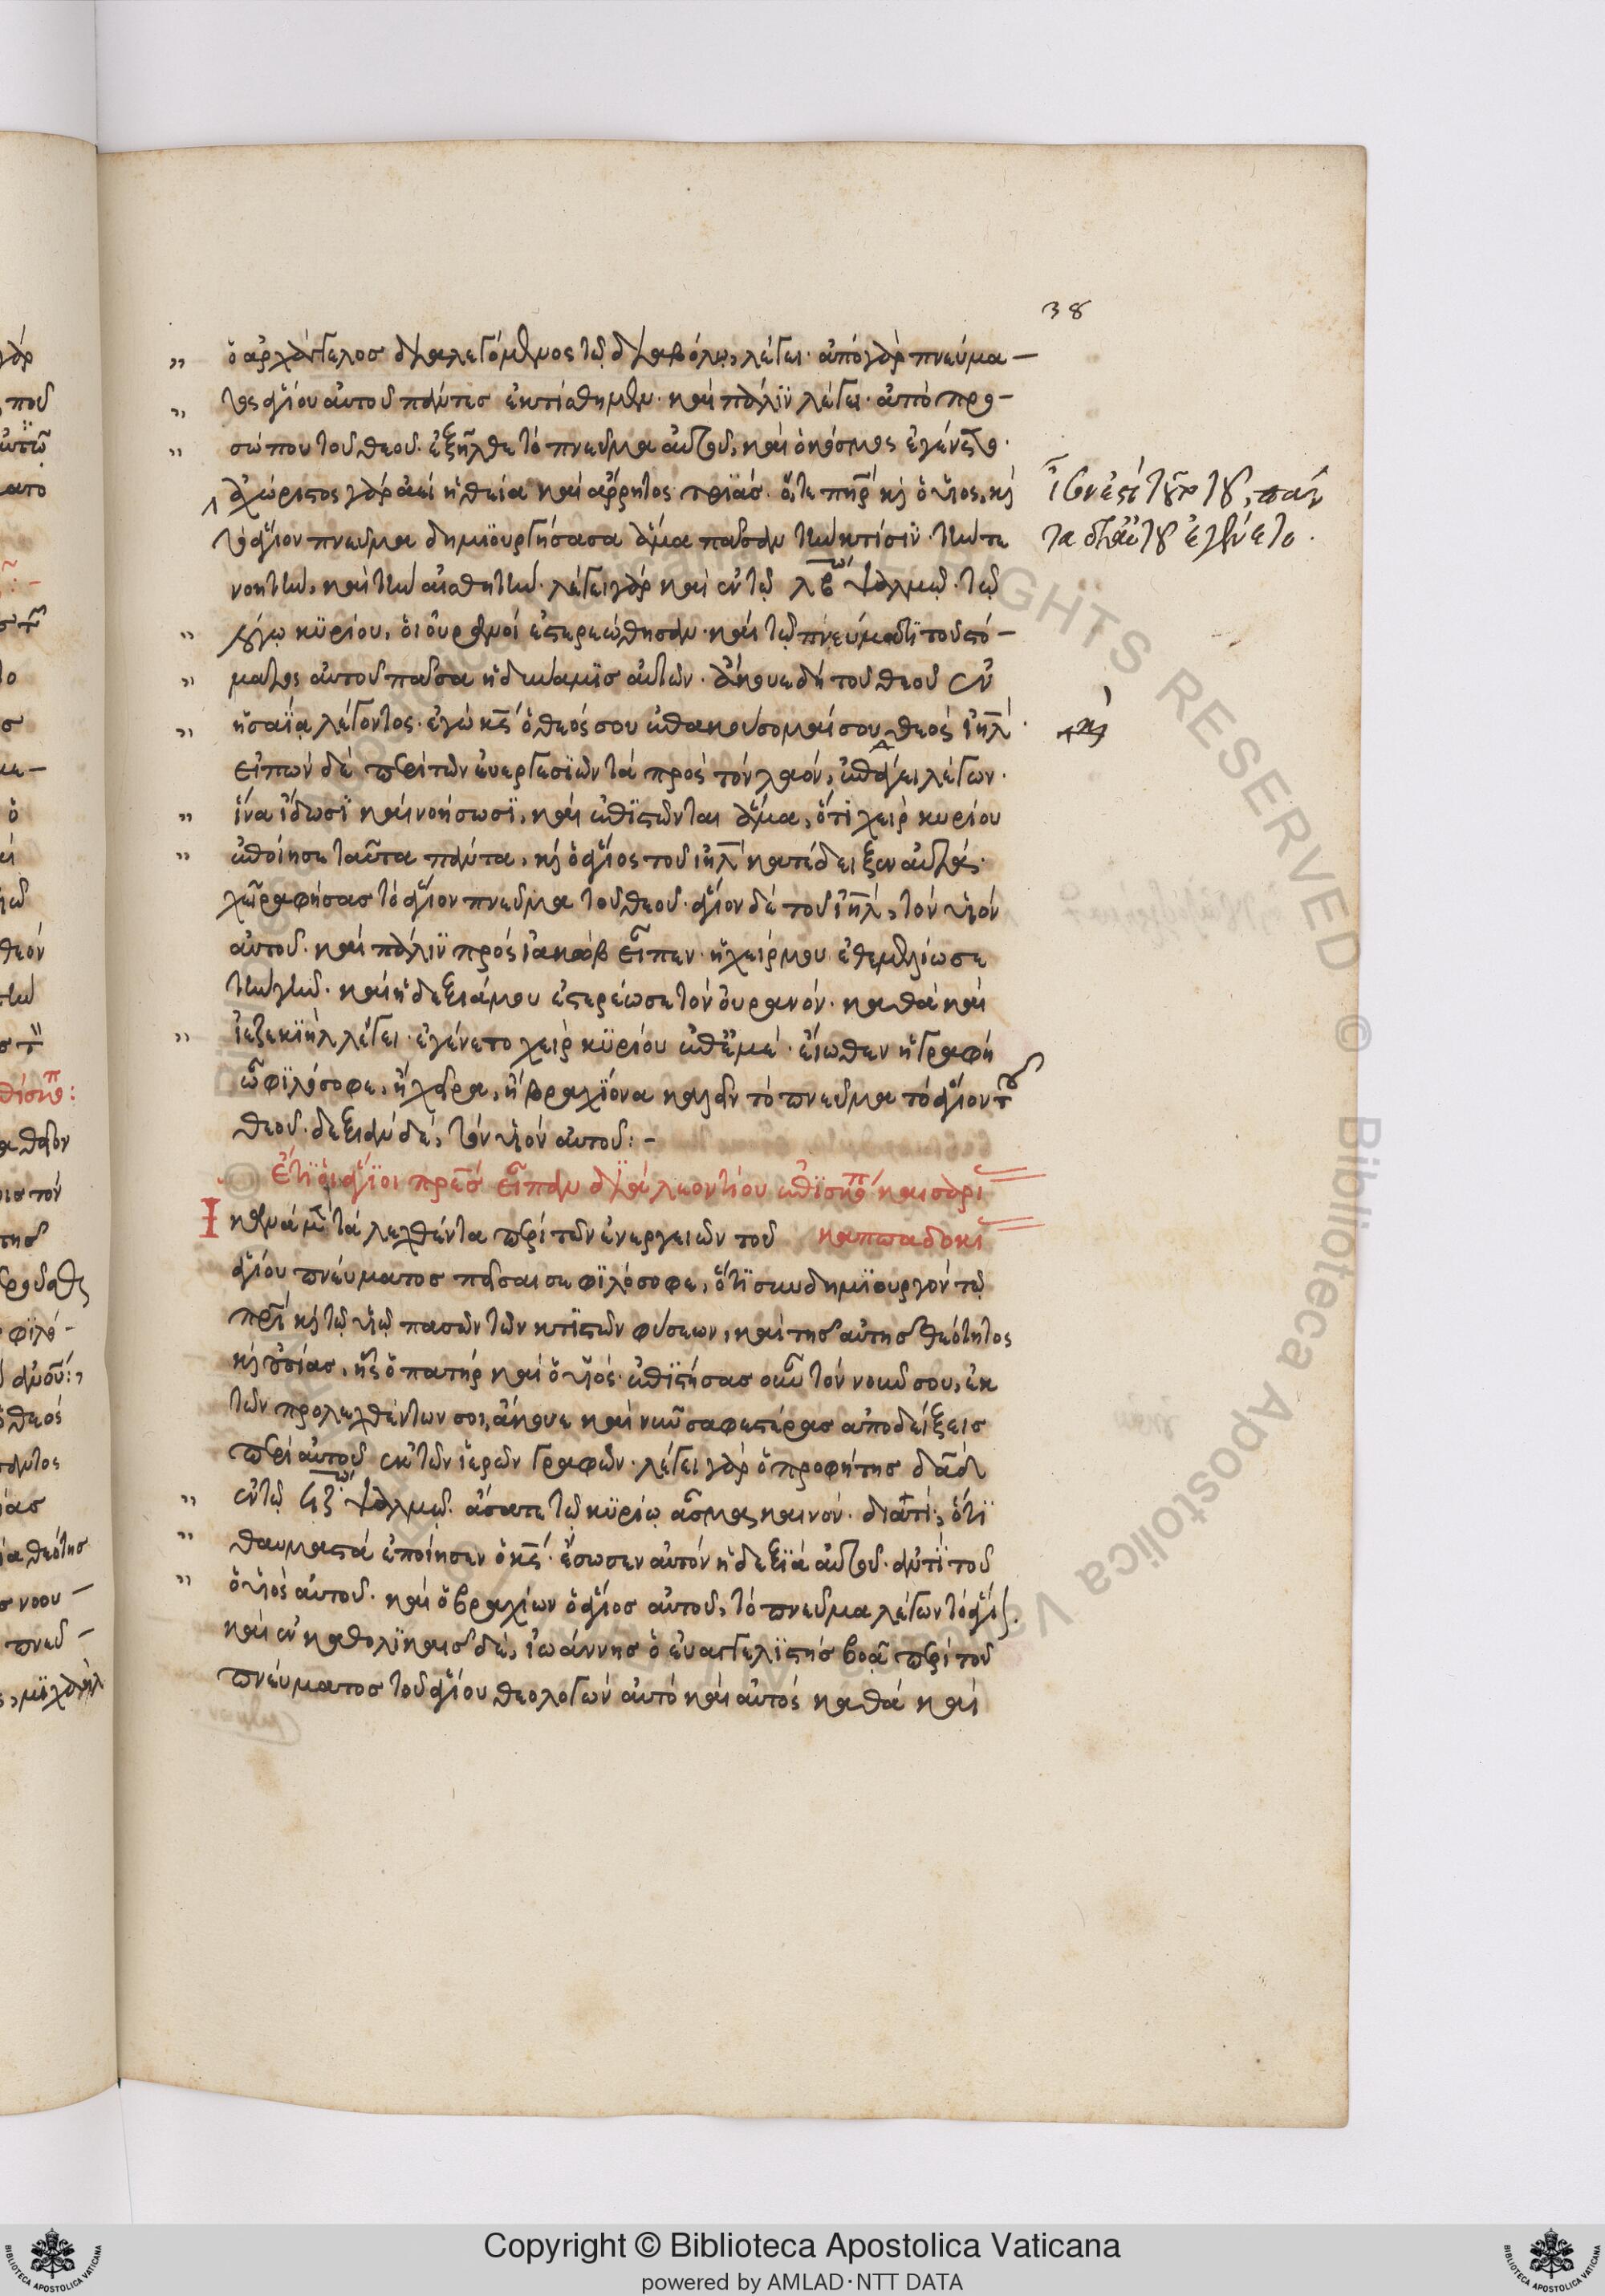 38
ὁ ἀρχάγγελος διαλεγόμενος τῷ διαβόλῳ, λέγει· ἀπὸ γὰρ πνεύμα–
τος ἁγίου αὐτοῦ πάντες ἐκτίσθημεν· καὶ πάλϊν λέγει· ἀπὸ προ–
σώπου τοῦ θεοῦ ἐξῆλθε τὸ πνεῦμα αὐτοῦ, καὶ ὁ κόσμος ἐγένετο·
ἀχώριστος γὰρ ἀεὶ ἡ θεία καὶ ἄρρητος τριάς· ὅ, τε πηρ κὶ ὁ υἱος, κὶ
τὸ ἅγιον πνεῦμα δημιουργήσασα ἅμα πᾶσαν τὴν κτίσιν· τήν τε
νοητήν, καὶ τὴν αἰσθητήν· λέγει γὰρ καὶ ἐν τῷ λβ ψαλμῷ· τῷ
λόγῳ κϋρίου, ὁι οὐρανοὶ ἐστερεώθησαν· καὶ τῷ πνεύματϊ τοῦ στό–
ματος αὐτοῦ πᾶσα ἡ δύναμϊς αὐτῶν· ἄκουε δὴ τοῦ θεοῦ ἐν
ἡσαΐα λέγοντος· ἐγὼ κς ὁ θεός σου ἐπακούσομαί σου θεὸς ιηλ·
εἰπὼν δὲ περὶ τῶν ἐυεργεσϊῶν τὰ πρὸς τὸν λαὸν, ἐπάγει λέγων·
ἵνα ἴδωσϊ καὶ νοήσωσϊ, καὶ ἐπϊστῶνται ἅμα, ὅτϊ χεὶρ κυρίου
ἐποίησε ταῦτα πάντα, κὶ ὁ ἅγιος τοῦ ιηλ κατέδειξεν αὐτάς·
χεῖρα φήσας τὸ ἅγιον πνεῦμα τοῦ θεοῦ· ἅγιον δὲ τοῦ ιηλ, τὸν υἱὸν
αὐτοῦ· καὶ πάλϊν πρὸς ἰακὼβ εἶπεν· ἡ χείρ μου ἐθεμελίωσε
τὴν γῆν· καὶ ἡ δεξιά μου ἐστερέωσε τὸν ὀυρανόν· καθὰ καὶ
ἰεζεκϊὴλ λέγει· ἐγένετο χεὶρ κϋρίου ἐπ ἐμέ· εἴωθεν ἡ γραφὴ
ὦ φϊλόσοφε, ἢ χεῖρα, ἢ βραχϊόνα καλεῖν τὸ πνεῦμα τὸ ἅγιον τοῦ
θεοῦ· δεξιὰν δέ, τὸν υἱὸν αὐτοῦ:–
Ἔτϊ ὁι ἅγϊοι πρες εἶπαν διὰ λεοντίου ἐπϊσκοπ καισαρι
καππαδοκι
Ἱκανὰ μὲν τὰ λεχθέντα περὶ τῶν ἐνεργειῶν τοῦ
ἁγίου πνεύματος πεῖσαι σε φϊλόσοφε, ὅτϊ συνδημϊουργὸν τῷ
πρὶ κὶ τῷ υἱῷ πασῶν τῶν κτϊστῶν φύσεων, καὶ τῆς αὐτῆς θεότητος
κὶ οὐσίας, ἧς ὁ πατὴρ καὶ ὁ υἱός· ἐπϊστήσας οὖν τὸν νοῦν σου, ἐκ
τῶν προλεχθέντων σοι, ἄκουε καὶ νῦν σαφεστέρας ἀποδείξεις
περὶ αὐτοῦ ἐκ τῶν ἱερῶν γραφῶν· λέγει γὰρ ὁ προφήτης δαδ
ἐν τῷ ϟζ ψαλμῷ· ἄσατε τῷ κϋρίῳ ᾆσμα καινόν· διατί; ὅτϊ
θαυμαστὰ ἐποίησεν ὁ κς· ἔσωσεν αὐτὸν ἡ δεξϊὰ αὐτοῦ· ἀντϊ τοῦ
ὁ υἱὸς αὐτοῦ· καὶ ὁ βραχίων ὁ ἅγιος αὐτοῦ, τὸ πνεῦμα λέγων τὸ ἅγιον.
καὶ ἐν καθολϊκαῖς δὲ, ἰωάννης ὁ ἐυαγγελϊστὴς βοᾷ περὶ τοῦ
πνεύματος τοῦ ἁγίου θεολογῶν αὐτὸ καὶ αὐτὸς καθὰ καὶ